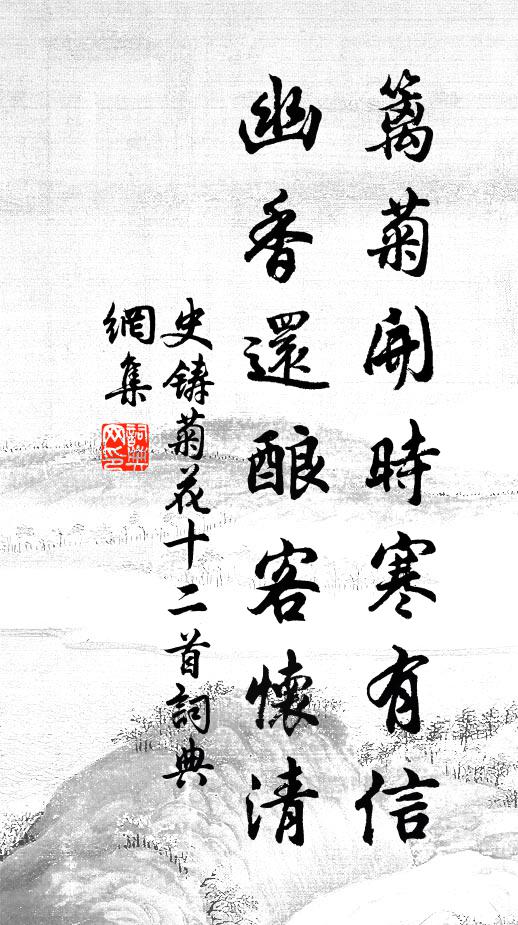 籬菊開時寒有信
幽香還酿客懷清
史鑄菊花十二首詞典
網集